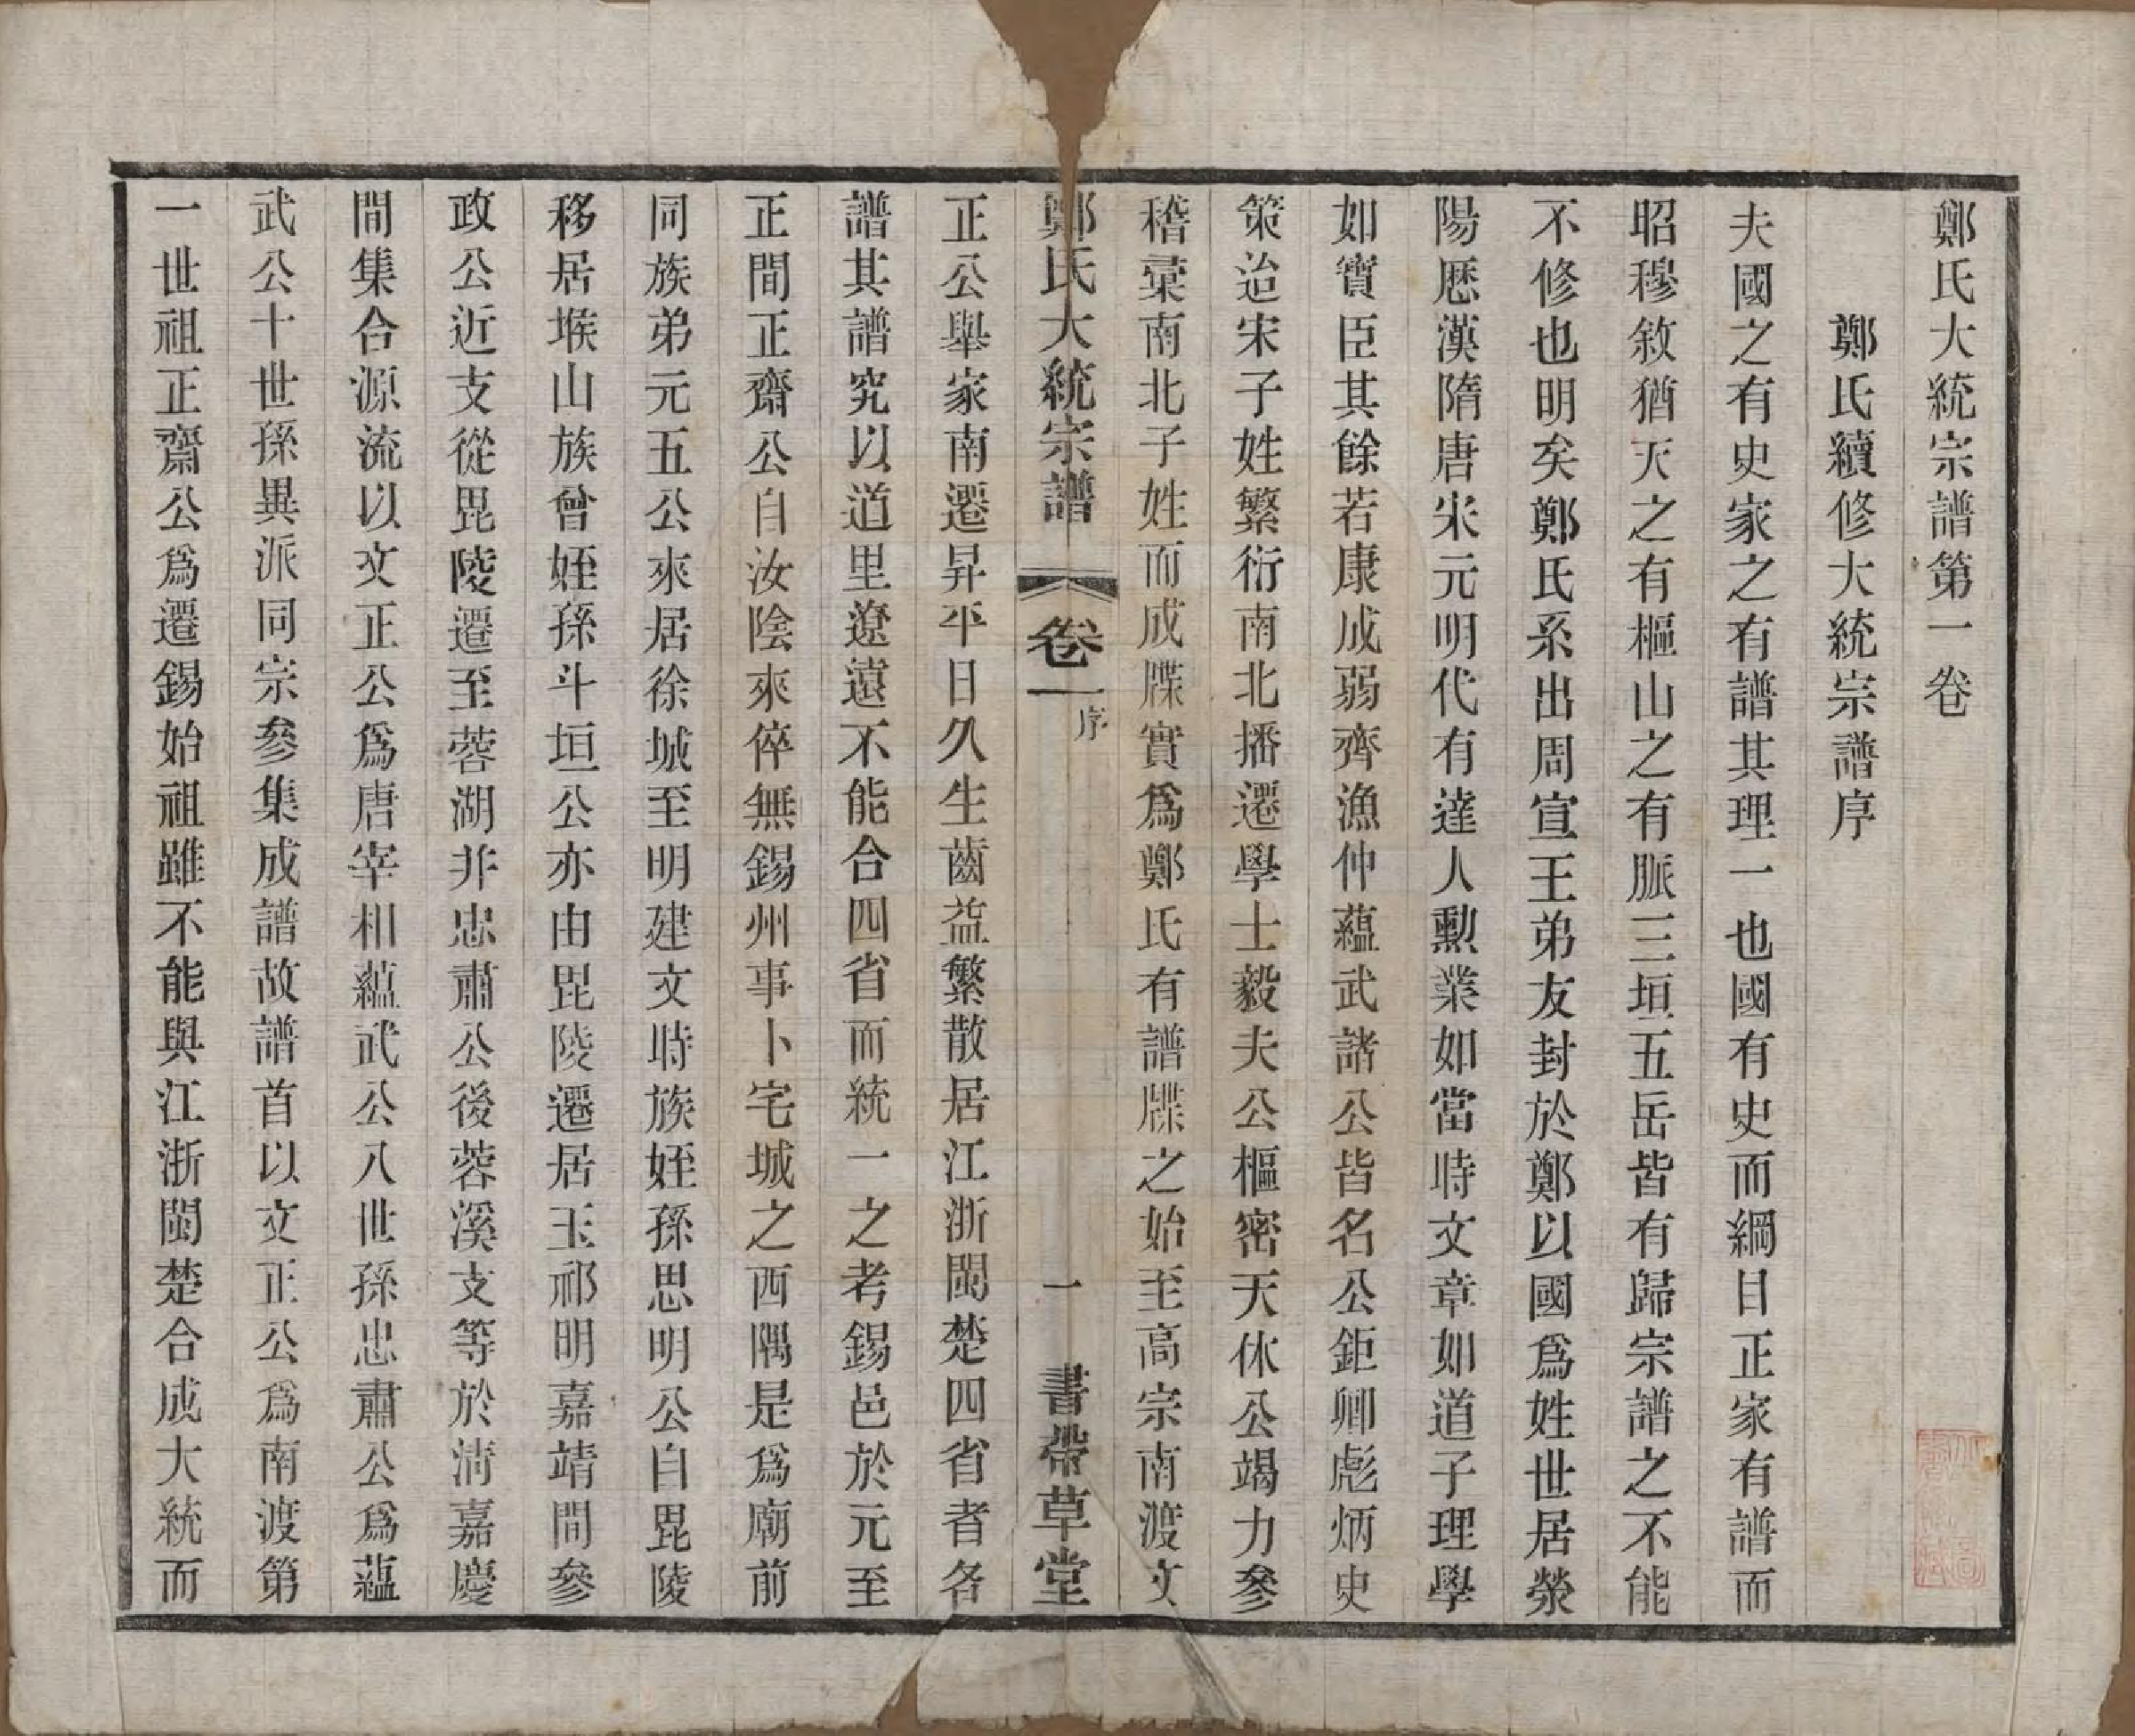 鄭氏大統宗譜第一卷
鄭氏續修大統宗譜序
夫國之有史家之有譜其理一也國有史而綱目正家有譜而
昭穆敘猶天之有樞山之有脈三垣五岳皆有歸宗譜之不能
不修也明矣鄭氏系出周宣王弟友封於鄭以國爲姓世居滎
陽歷漢隋唐宋元明代有達人勳業如當時文章如道子理學
如實臣其餘若康成弱齊漁仲蘊武諸公皆名公鉅卿彪炳史
策迨宋子姓繁衍南北播遷學士毅夫公樞密天休公竭力參
稽彙南北子姓而成牒實爲鄭氏有譜牒之始至高宗南渡文
鄭氏大統宗譜 卷一 序 一 書帶草堂
正公舉家南遷昇平日久生齒益繁散居江浙閩楚四省者各
譜其譜究以道里遼遠不能合四省而統一之考錫邑於元至
正間正齋公自汝陰來倅無錫州事卜宅城之西隅是爲廟前
同族弟元五公來居徐城至明建文時族姪孫思明公自毘陵
移居堠山族曾姪孫斗垣公亦由毘陵遷居玉祁明嘉靖間參
政公近支從毘陵遷至蓉湖非忠肅公後蓉溪支等於淸嘉慶
間集合源流以文正公爲唐宰相蘊武公八世孫忠肅公爲蘊
武公十世孫異派同宗參集成譜故譜首以文正公爲南渡第
一世祖正齋公爲遷錫始祖雖不能與江浙閩楚合成大統而